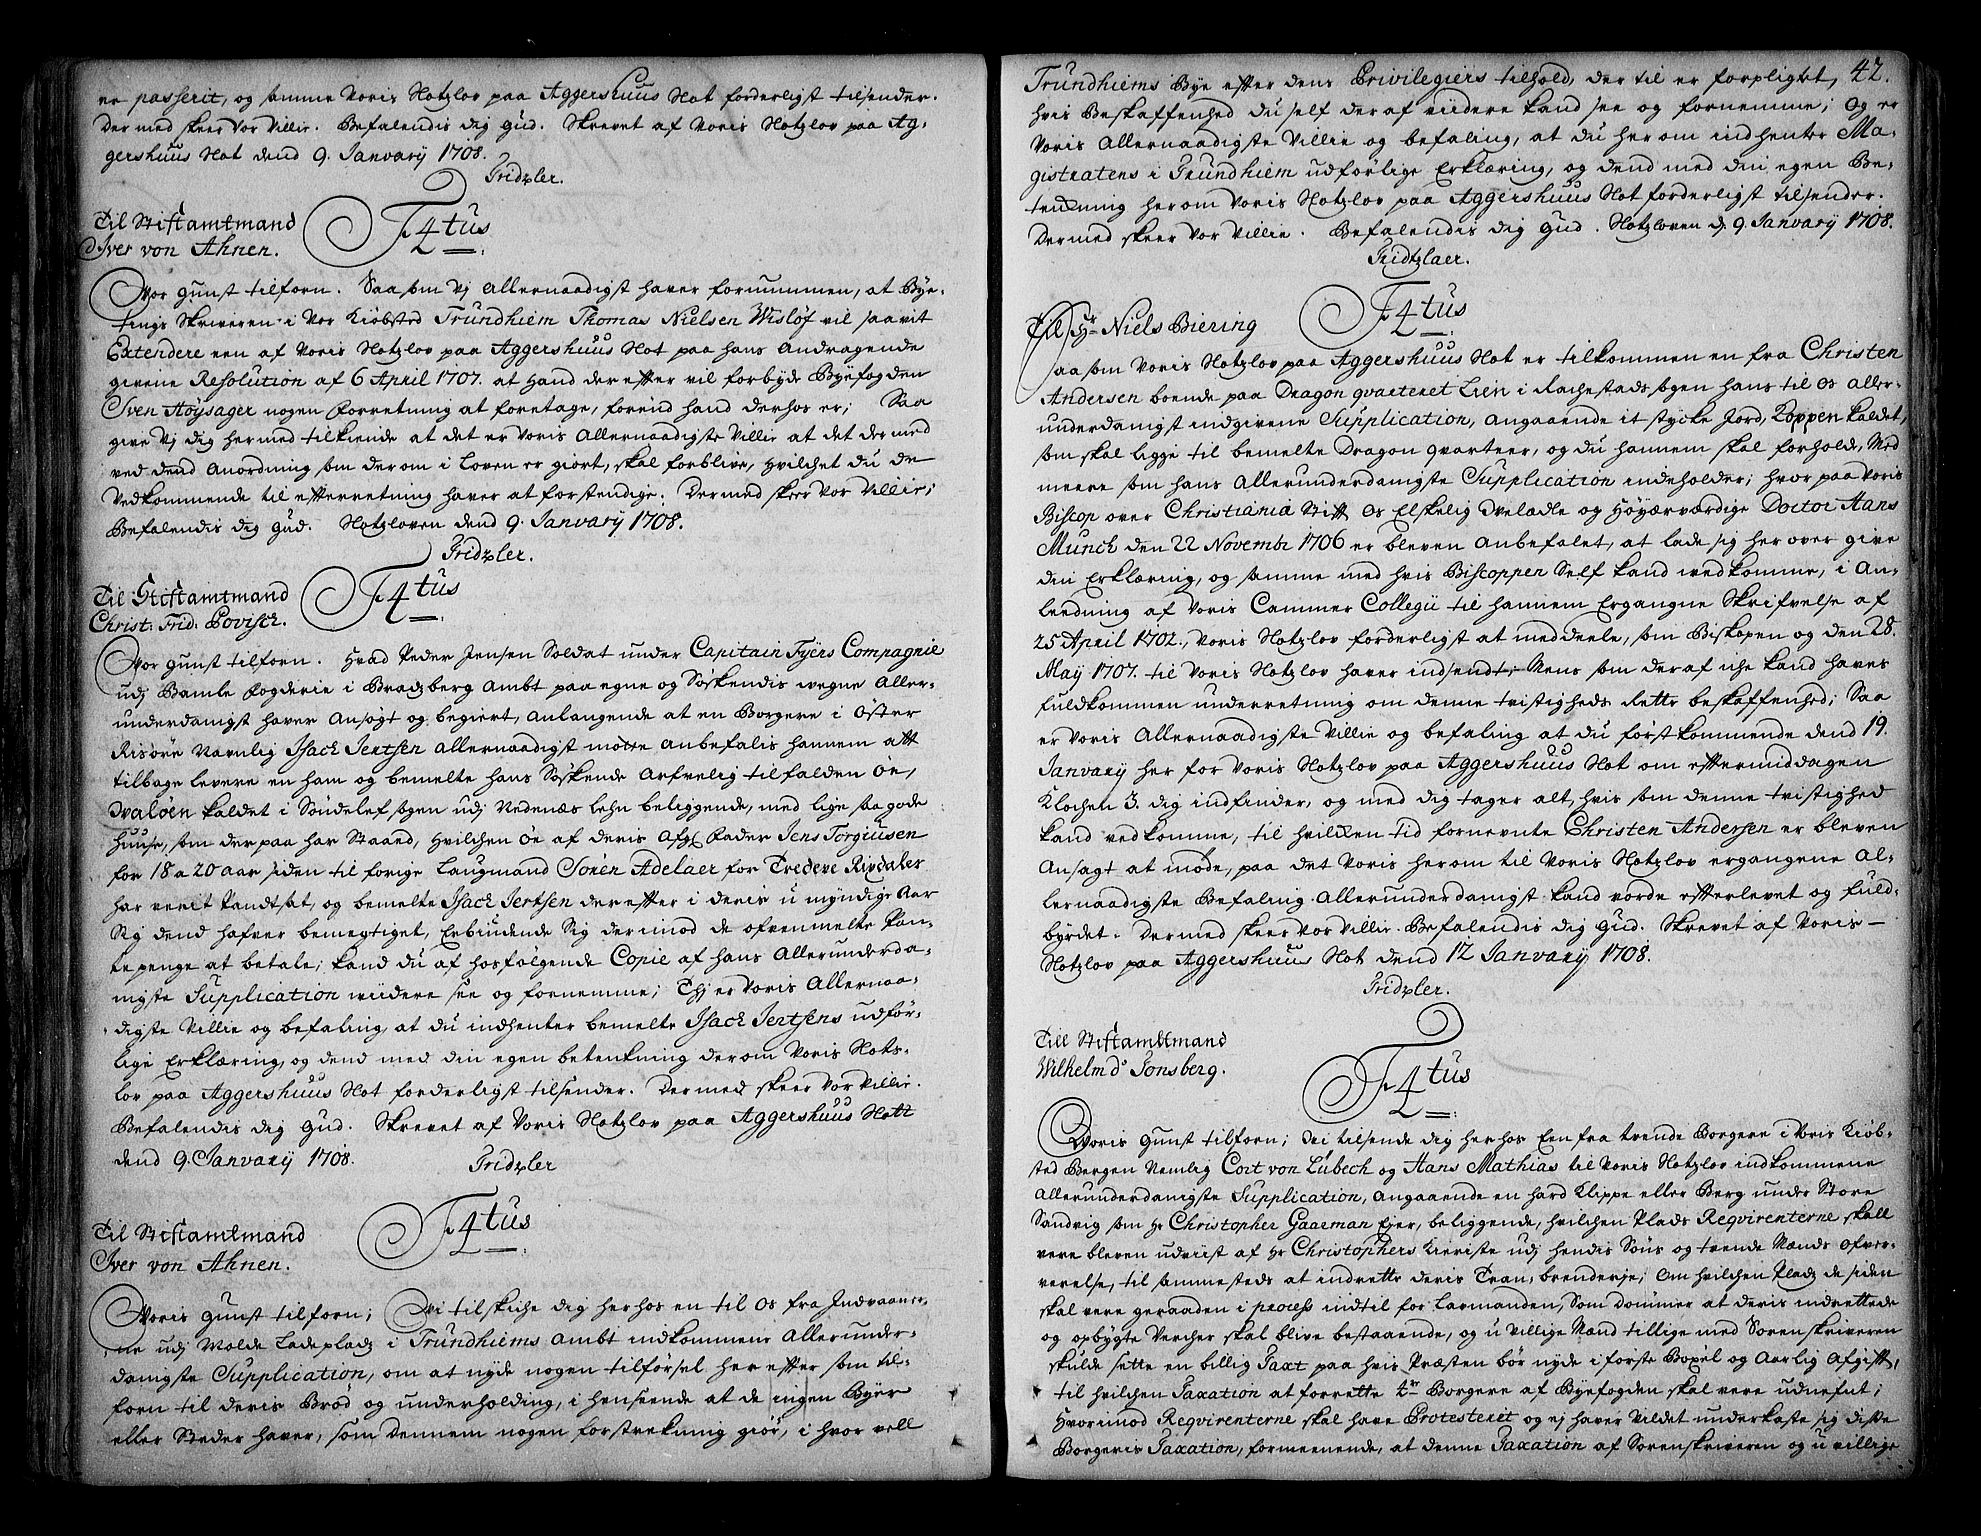 er passerit, og samme Voris Slotzlov paa Aggershuus Slot forderligst tilsender.
Der med skeer Vor Villie. Befalendis dig Gud. Skrevet af Voris Slotzlov paa Ag-
gershuus Slot dend 9. January 1708.
Fridzler.
Til Stiftamtmand
Iver von Ahnen.
F4tus
Vor gunst tilforn. Saasom Vj Allernaadigst haver fornummen, at Bye-
tings Skriveren i Vor Kiøbsted Trundhiem Thomas Nielsen Wisløf vil saavit
Extendere een af Voris Slotzlov paa Aggershuus Slot paa hans Andragende
givene Resolution af 6 April 1707. at hand der effter vil forbyde Byefogden
Sven Høysager nogen Forretning at foretage, forind hand derhos er; Saa
give Vj dig hermed tilkiende at det er Voris Allernaadigste Villie at det der med
ved dend Anordning som derom i Loven er giort, skal forblive, hvilchet du de
Vedkommende til efterretning haver at forstendige. Dermed skeer Vor Villie;
Befalendis dig Gud. Slotzloven dend 9. January 1708.
Fridzler.
Til Stiftamtmand
Christ: Frid: Povisch.
F4tus
Vor gunst tilforn. Hvad Peder Jensen Soldat under Capitain Fyers Compagnie
udj Bamle fogderie i Bradsberg Ambt paa egne og Søskendis wegne Aller-
underdanigst haver Ansøgt og begiert, anlangende at en Borgere i Øster
Risøer Navnlig Isach Jertsen allernaadigst motte anbefalis hannem att
tilbage levere en ham og bemelte hans Søskende Arfvelig tilfalden Øe,
Svaløen kaldet i Søndelef sogn udj Nedenæs lehn beliggende, med lige saa gode
Huuse, som der paa har staaed, hvilchen Øe af deris Afg: Fader Jens Torguusen
for 18 a 20 aar siden til forige Laugmand Søren Adelaer for Tredeve Rixdaler
har verit Pandtsat, og bemelte Isach Jertsen der effter i deris u myndige Aar
Sig dend hafver bemegtiget, Erbiudende Sig derimod de ofvenmelte Pan-
tepenge at betale; kand du af hosfølgende Copie af hans Allerunderda-
nigste Supplication widere see og fornemme; Thj er Voris Allernaa-
digste Villie og befaling, at du indhenter bemelte Isach Jertsens udfør-
lige Erklæring, og dend med din egen betenkning derom Voris Slots-
lov paa Aggershuus Slot forderligst tilsender. Dermed skeer Vor Villie.
Befalendis dig Gud. Skrevet af Voris Slotzlov paa Aggershuus Slott
dend 9. January 1708.
Fridzler
Til Stiftamtmand
Iver von Ahnen.
F4tus
Voris gunst tilforn; Vi tilskiche dig herhos en til Os fra Indvaaner-
ne udj Molde Ladeplads i Trundhiems Ambt indkommene Allerunder-
danigste Supplication, om at nyde nogen tilførsel her effter som til-
forn til deris Brød og underholding, i henseende at de ingen Byer
eller Steder haver, som dennem nogen forstrekning giør, i hvor vell
42.
Trundhiems Bye effter dens Privilegiers tilhold, der til er forpligtet,
hvis Beskaffenhed du self der af viidere kand see og fornemme; Og er
Voris Allernaadigste Villie og befaling, at du her om indhenter Ma-
gistratens i Trundhiem udførlige Erklæring, og dend med din egen Be-
tenkning her om Voris Slotzlov paa Aggershuus Slot forderligst tilsender.
Dermed skeer Vor Villie. Befalendis dig Gud. Slotzloven d: 9. January 1708.
Fridtzlaer.
Til Hr Niels Biering
F4tus
Saasom Voris Slotzlov paa Aggershuus Slot er tilkommen en fra Christen
Andersen boende paa Dragon qvarteret Lien i Rachestad sogn hans til Os aller-
underdanigst indgivene Supplication, angaaende it stycke Jord, Koppen kaldet,
som skal ligge til bemelte Dragon qvarteer, og du hannem skal forholde, Med
meere som hans Allerunderdanigste Supplication indeholder; hvor paa Voris
Biscop over Christiania Stift Os Elskelig Velædle og Høyærværdige Doctor Hans
Munch den 22 Novembr 1706 er bleven Anbefalet, at lade sig her over give
din Erklæring, og samme med hvis Biscoppen Self kand wedkomme, i An-
leedning af Voris Cammer Collegii til hannem Ergangne Skrifvelse af
25 April 1702., Voris Slotzlov forderligst at meddeele, som Biskopen og den 28.
May 1707. til Voris Slotzlov haver indsendt; Mens som der af iche kand haves
fuldkommen underretning om denne tvistigheds rette beskaffenhed; Saa
er Voris Allernaadigste Villie og befaling at du førstkommende dend 19.
January her for Voris Slotzlov paa Aggershuus Slot om effter middagen
Klochen 3. dig indfinder, og med dig tager alt, hvis som denne tvistighed
kand vedkomme, til hvilken tid fornevnte Christen Andersen er bleven
Ansagt at møde, paa det Voris her om til Voris Slotzlov ergangene Al-
lernaadigste Befaling Allerunderdanigst kand vorde effterlevet og fuld-
byrdet. Dermed skeer Vor Villie. Befalendis dig Gud. Skrevet af Voris
Slotzlov paa Aggershuus Slot dend 12 January 1708.
Fridzler.
Till Stiftamtmand
Wilhelm de Tonsberg.
F4tus
Voris gunst tilforn; Vi tilsende dig herhos Een fra tvende Borgere i Voris Kiøb-
sted Bergen Nemlig Cort von Lübech og Hans Mathias til Voris Slotzlov indkommene
Allerunderdanigste Supplication, angaaende en hard Klippe eller Berg under Store
Sandvig som Hr Christopher Gaarman Ejer, beliggende, hvilchen Plads Reqvirenterne skall
vere bleven udviist af Hr Christophers Kieriste udj hendis Søns og tvende Mænds ofver-
verelse, til sammesteds at indrette deris Tran, brenderje; Om hvilchen Plads de siden
skal vere geraaden i process indtil for Larmanden, Som dommer at deris indrettede
og opbygte Vercher skal blive bestaaende, og u villige Mænd tillige med Sorenskriveren
skulde sette en billig Taxt paa hvis Præsten bør nyde i første Bøxel og Aarlig Afgifft,
til hvilchen Taxation at forrette tr Borgere af Byefogden skal vere udnefnt;
Hvorimod Reqvirenterne skal have Protesteret og ej haver villet underkaste sig disse
Borgeris Taxation, formeenende, at denne Taxation af Sorenskriveren og u villige